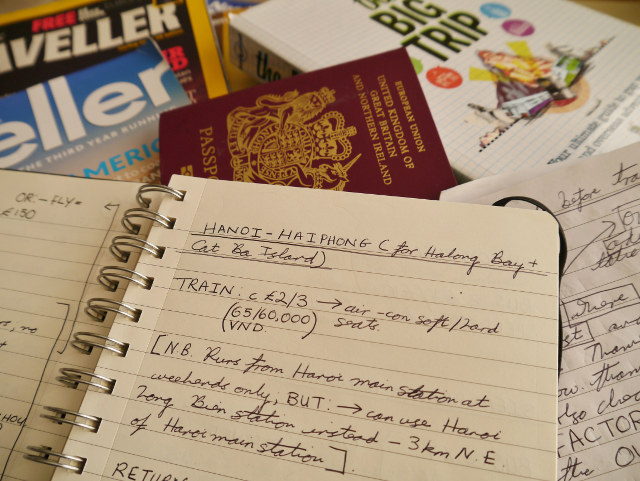 FREE the
VELLER
eller
THE THIRD YEAR RUNN
AMERIC
THE
BIG
TRIP
the
Your ultimate guide to
EUROPEAN UNION
UNITED KINGDOM OF
GREAT BRITAIN
AND NORTHERN IRELAND
PASSP
OR - FLY =
£150
HANOI - HAIPHONG (for Halong Bay +
Cat Ba Island)
TRAIN: c £2/3 → air-con soft/hard
seats.
(65/60,000
VND)
[NB. Runs from Hanoi main station at
weekends only, BUT: → can use Hanoi
Long Bien station instead - 3km N.E.
of Hanoi main station].
RETUR
before tra
where
also chec
FACTOR
the OU